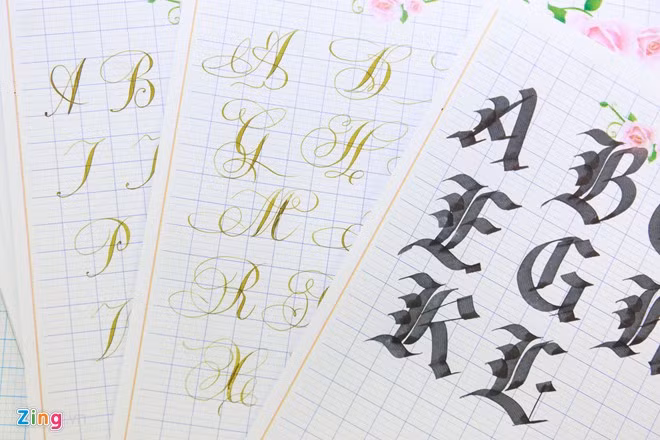 A B
I J
P
V
A B
G H
M
R S
X
A B
E G
K L
Zing